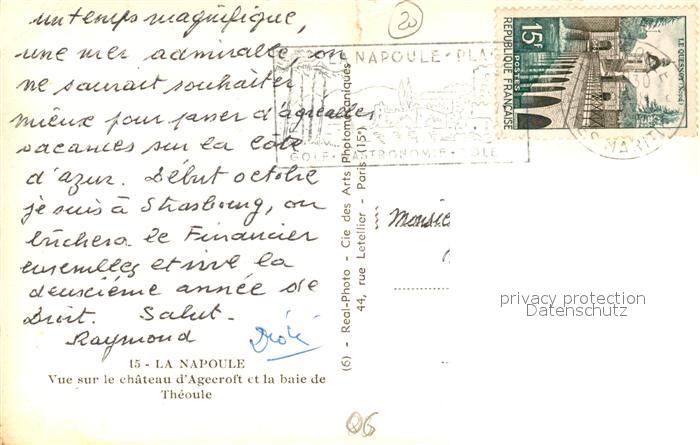 un temps magnifique,
une mer admirable, on
ne saurait souhaiter
mieux pour passer d'agréables
vacances sur la Côte
d'azur. Début octobre
je suis à Strasbourg, on
bûchera le Financier
ensembles et vive la
deuxième année de
Droit. Salut.
Raymond
15 - LA NAPOULE
Vue sur le château d'Agecroft et la baie de
Théoule
(6) - Real-Photo - Cie des Arts Photomécaniques
44, rue Letellier - Paris (15e)
20
LA NAPOULE - PLAGE
GOLF - GASTRONOMIE - VOILE
15F
RÉPUBLIQUE FRANÇAISE
POSTES
LE QUESNOY (NORD)
MARIT
Monsie
privacy protection
Datenschutz
06